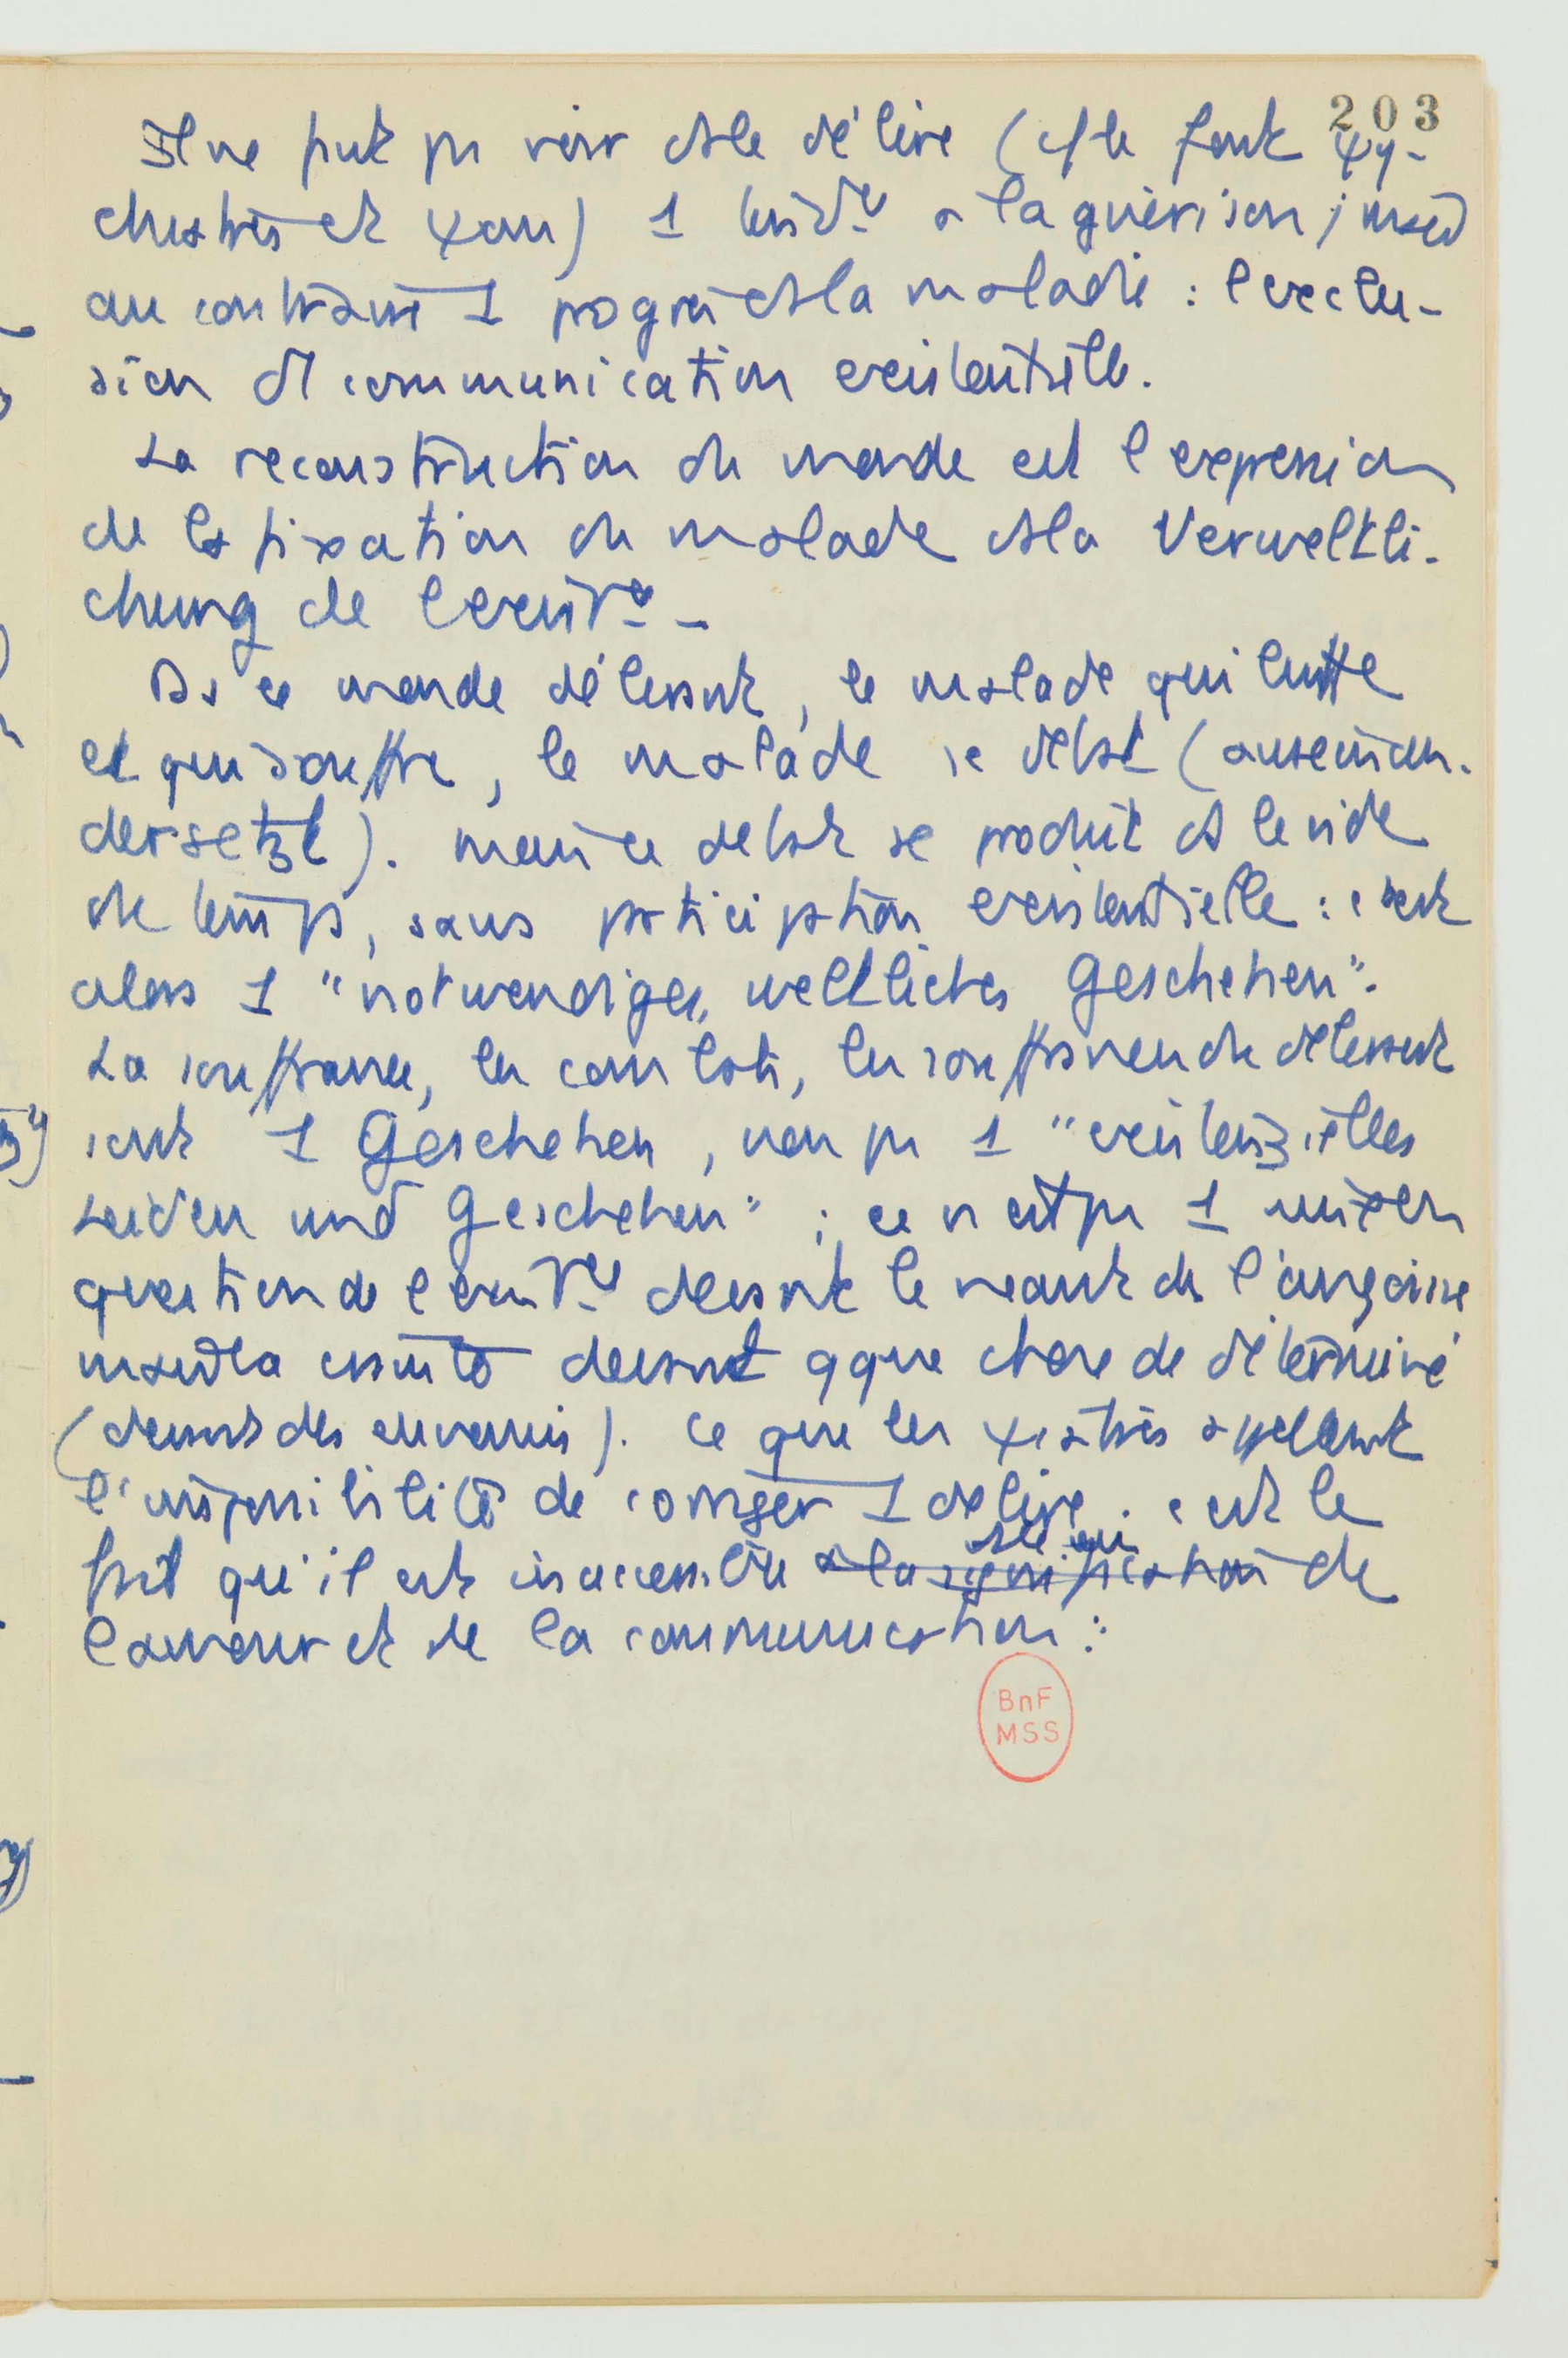 203
Il ne faut pas voir ds le délire (c/ le font ψy-
chiatres et ψan) 1 tendce à la guérison ; mais
au contraire 1 progrès ds la maladie : l'exclu-
sion de communication existentielle.
La reconstruction du monde est l'expression
de la fixation du malade ds la Verweltli-
chung de l'existce -
Ds ce monde délirant, le malade qui lutte
et qui souffre, le malade se débat (auseinan-
dersetzt). Mais ce débat se produit ds le vide
du temps, sans participation existentielle : c'est
alors 1 "notwendiges, weltliches Geschehen".
La souffrance, les combats, les souffrances du délirant
sont 1 Geschehen, non pas 1 "existenzielles
Leiden und Geschehen" ; ce n'est pas 1 mise en
question de l'existce devant le néant de l'angoisse
mais la crainte devant qque chose de déterminé
(devant des ennemis). Ce que les ψiatres appellent
l'impossibilité de corriger 1 délire, c'est le
fait qu'il est inaccessible à la signification de
l'amour et de la communication :
BnF
MSS